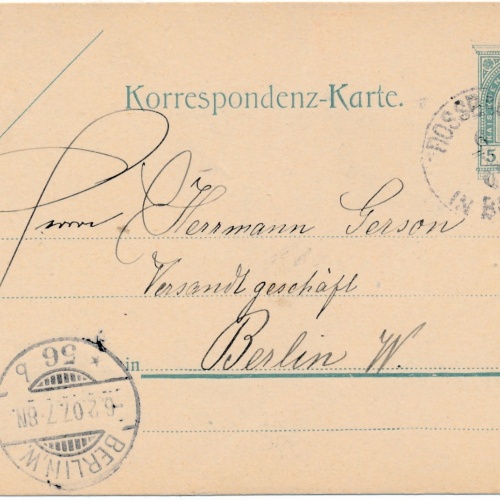 Korrespondenz-Karte.
5
IN
Herrn Herrmann Gerson
Versandtgeschäft
in Berlin W.
* 56 b
6.2.07.7-8N.
BERLIN.W